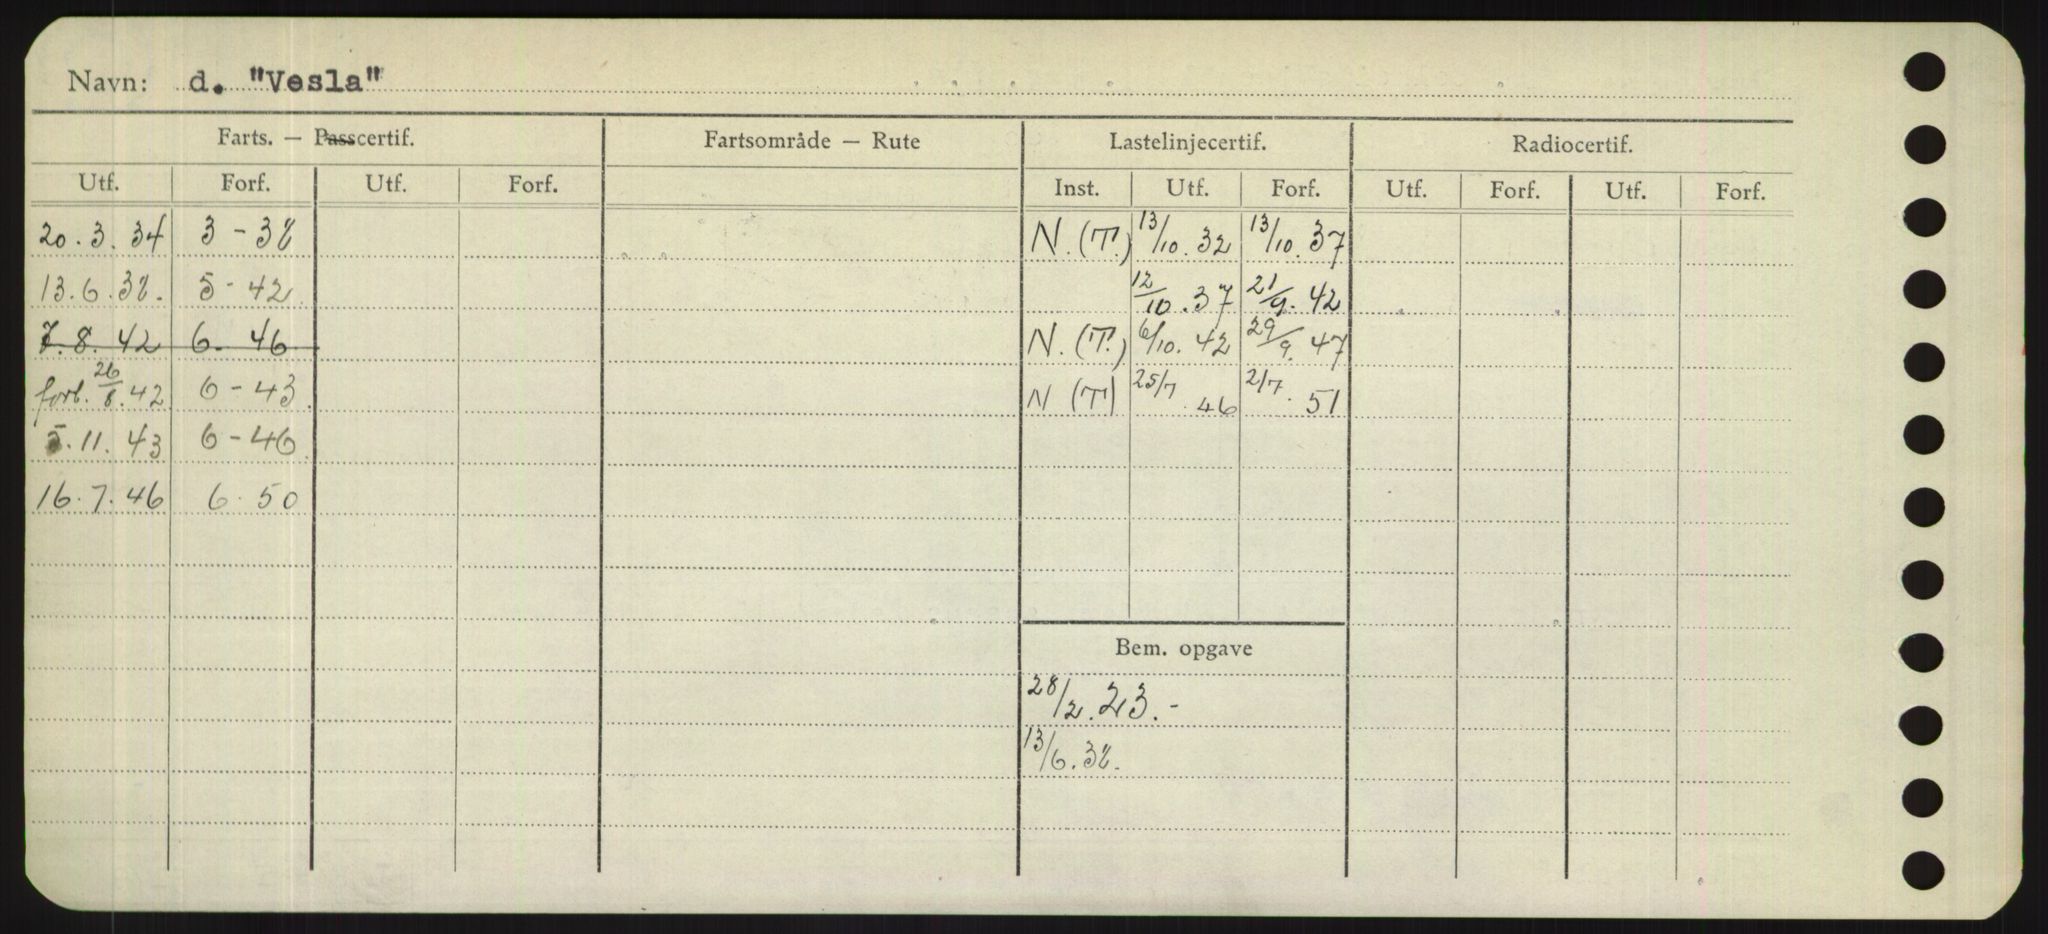 Navn: d. "Vesla"
Farts. — Passcertif. Fartsområde — Rute Lastelinjecertif. Radiocertif.
Utf. Forf. Utf. Forf. Inst. Utf. Forf. Utf. Forf. Utf. Forf.
20.3.34 3-38 N.(T.) 13/10.32 13/10.37
13.6.38. 5-42 12/10.37 21/9.42
7.8.42 6-46 N.(T.) 6/10.42 29/9.47
forl. 26/8.42 6-43 N(T) 25/7.46 2/7.51
5.11.43 6-46
16.7.46 6.50
Bem. opgave
28/2.23.-
13/6.38.